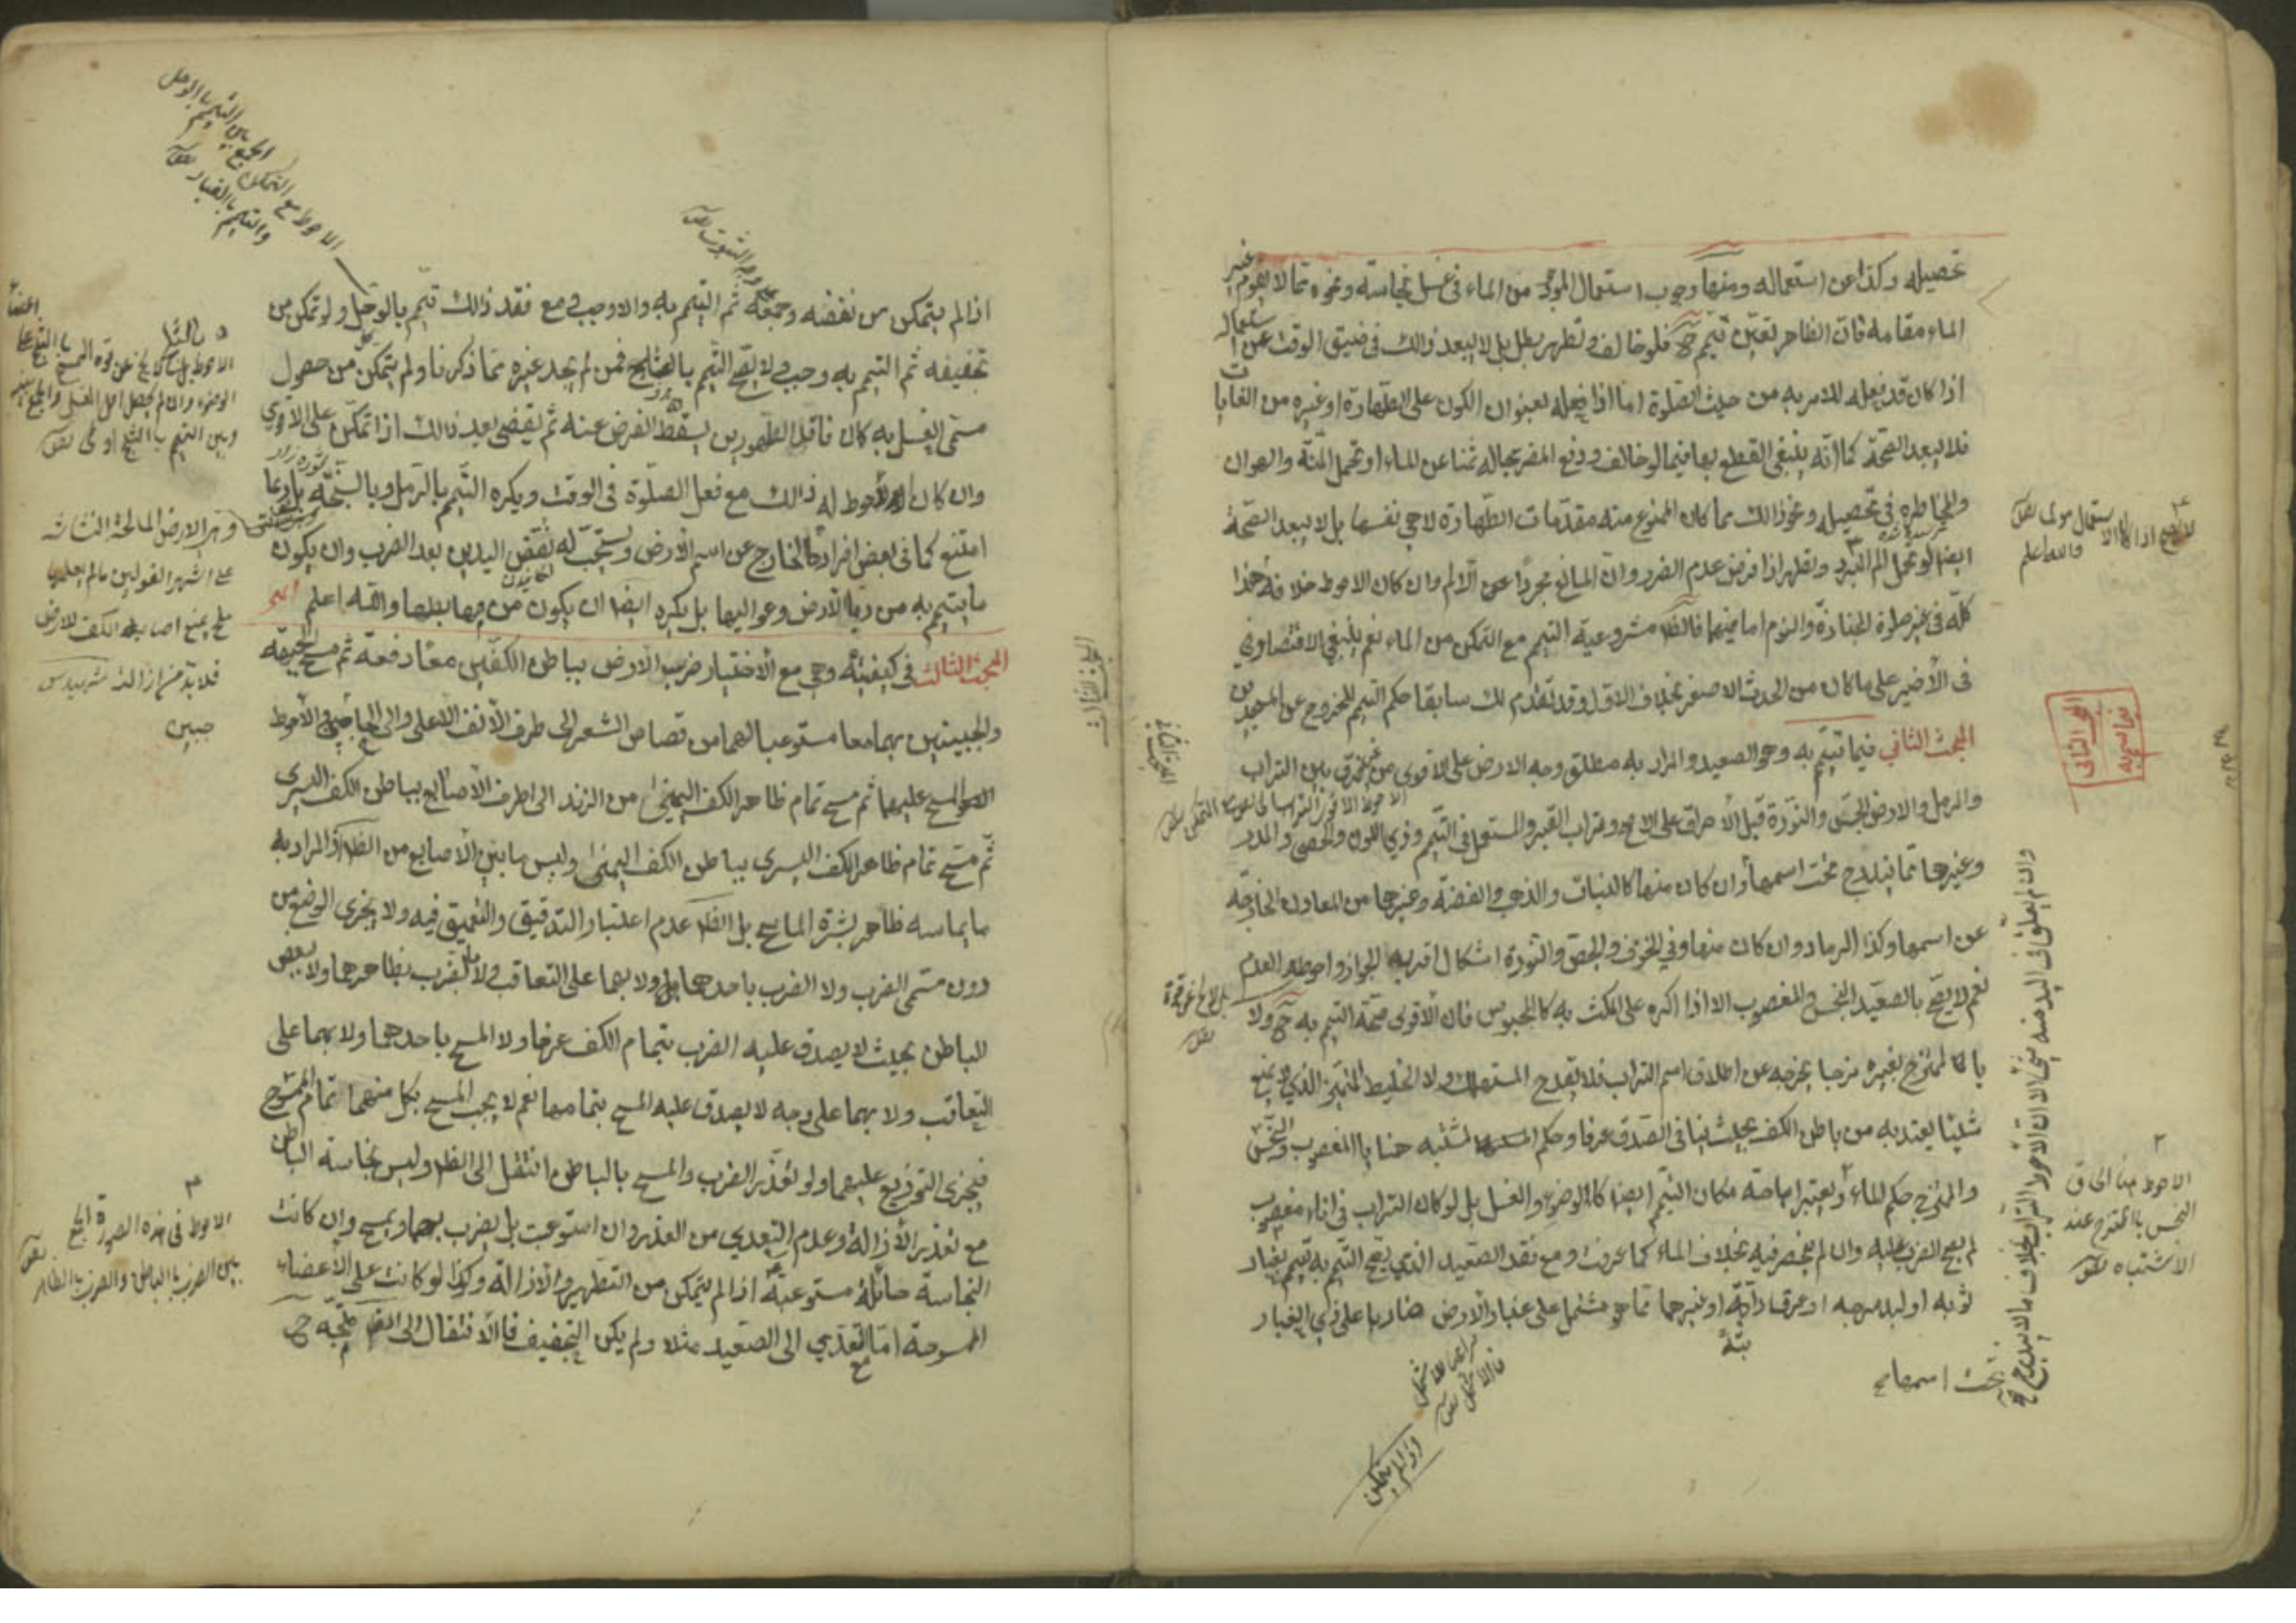 تحصيله وكذا عن استعماله ومنها وجوب استعمال الموجود من الماء في غسل نجاسة ونحوه مما لا يقوم غير
الماء مقامه فان الظاهر تعين تيمم ح فلو خالف وتطهر بطل بل لا يبعد ذلك في ضيق الوقت عن استعماله
اذا كان قد فعله للامر به من حيث الصلوة اما اذا فعله بعنوان الكون على الطهارة او غيره من الغايات
فلا يبعد الصحة كما انه ينبغي القطع بها فيما لو خالف ودفع المضر بحاله ثمنا عن الماء او تحمل المنة والهوان
والمخاطره في تحصيله ونحو ذلك مما كان الممنوع منه مقدمات الطهارة لا هي نفسها بل لا يبعد الصحة
ايضا لو تحمل الم البرد وتطهر اذا فرض عدم الضرر وان المانع مجردا عن الالم وان كان الاحوط خلافه هذا
كله في غير صلوة الجنازة والنوم اما فيهما فالظ مشروعية التيمم مع التمكن من الماء نعم ينبغي الاقتصار
في الأخير على ما كان من الحدث الاصغر بخلاف الاول وقد تقدم لك سابقا حكم التيمم للخروج عن المسجدين
المبحث الثاني فيما تيمم به وهو الصعيد والمراد به مطلق وجه الارض على الاقوى من غير فرق بين التراب
والرمل والارض الجص والنورة قبل الاحراق على الاصح وتراب القبر والمستعمل في التيمم وذي اللون والحصى والمدر
وغيرها مما يندرج تحت اسمها وان كان منها كالنبات والذهب والفضة وغيرها من المعادن الخارجة
عن اسمها وكذا الرماد وان كان منها وفي الخزف والجص والنورة اشكال اقربه الجواز واحوطه العدم
نعم لا يصح بالصعيد النجس والمغصوب الا اذا اكره على المكث به كالمحبوس فان الأقوى صحة التيمم به ح ولا
بالممتزج بغيره مزجا يخرجه عن اطلاق اسم التراب فلا يقدح المستهلك ولا الخليط المتميز الذي لا يمنع
شيئا يعتد به من باطن الكف بحيث ينافي الصدق عرفا وحكم المشتبه هنا بالمغصوب والنجس
والممتزج حكم الماء ويعتبر اباحة مكان التيمم ايضا كالوضوء والغسل بل لو كان التراب في اناء مغصوب
لم يصح الضرب عليه وان لم ينحصر فيه بخلاف الماء كما عرفت ومع فقد الصعيد الذي يصح التيمم به تيمم بغبار
ثوبه او لبد سرجه او عرف دابته او غيرهما مما هو مشتمل على غبار الارض ضاربا على ذي الغبار
اذا لم يتمكن
الاحوط هنا الحاق
النجس بالممتزج عند
الاشتباه
تحت اسمها
اذا لم يتمكن من نفضه وجمعه ثم التيمم به والا وجب ومع فقد ذلك تيمم بالوحل ولو تمكن من
تجفيفه ثم التيمم به وجب ولا يصح التيمم بالثلج فمن لم يجد غيره مما ذكرنا ولم يتمكن من حصول
مسمى الغسل به كان فاقد الطهورين يسقط الفرض عنه ثم يقضي بعد ذلك اذا تمكن على الاقوى
وان كان الاحوط له ذلك مع فعل الصلوة في الوقت ويكره التيمم بالرمل وبالسبخة بل ربما
امتنع كما في بعض افرادها الخارج عن اسم الارض ويستحب له نفض اليدين بعد الضرب وان يكون
ما يتيمم به من ربى الارض وعواليها بل يكره ايضا ان يكون من مهابطها والله اعلم
المبحث الثالث في كيفيته وهي مع الاختيار ضرب الارض بباطن الكفين معا دفعة ثم مسح الجبهة
والجبينين بهما معا مستوعبا لهما من قصاص الشعر الى طرف الأنف الاعلى والى الحاجبين والأحوط
المسح عليهما ثم مسح تمام ظاهر الكف اليمنى من الزند الى اطراف الأصابع بباطن الكف اليسرى
ثم مسح تمام ظاهر الكف اليسرى بباطن الكف اليمنى وليس ما بين الأصابع من الظاهر اذ المراد به
ما يماسه ظاهر بشرة الماسح بل الظ عدم اعتبار التدقيق والتعميق فيه ولا يجزى الوضع من
دون مسمى الضرب ولا الضرب باحدهما ولا بهما على التعاقب ولا الضرب بظاهرهما ولا ببعض
الباطن بحيث لا يصدق عليه الضرب بتمام الكف عرفا ولا المسح باحدهما ولا بهما على
التعاقب ولا بهما على وجه لا يصدق عليه المسح بتمامها نعم لا يجب المسح بكل منهما تمام الممسوح
فيجزى التوزيع عليهما ولو تعذر الضرب والمسح بالباطن انتقل الى الظاهر وليس نجاسة الباطن
مع تعذر الازالة وعدم التعدي من العذر وان استوعبت بل يضرب بهما ويمسح وان كانت
النجاسة حائلة مستوعبة اذا لم يتمكن من التطهير والازالة وكذا لو كانت على الاعضاء
الممسوحة اما مع التعدي الى الصعيد مثلا ولم يكن التجفيف فالانتقال الى الظ متجه ح
الاحوط مع التمكن الجمع بين التيمم بالوحل
والتيمم بالغبار
وهي الارض المالحة النشاشه
على اشهر القولين ما لم يعلها
ملح يمنع اصابة الكف للارض
فلا بد من ازالته
الاحوط في هذه الصورة الجمع
بين الضرب بالباطن والضرب بالظاهر